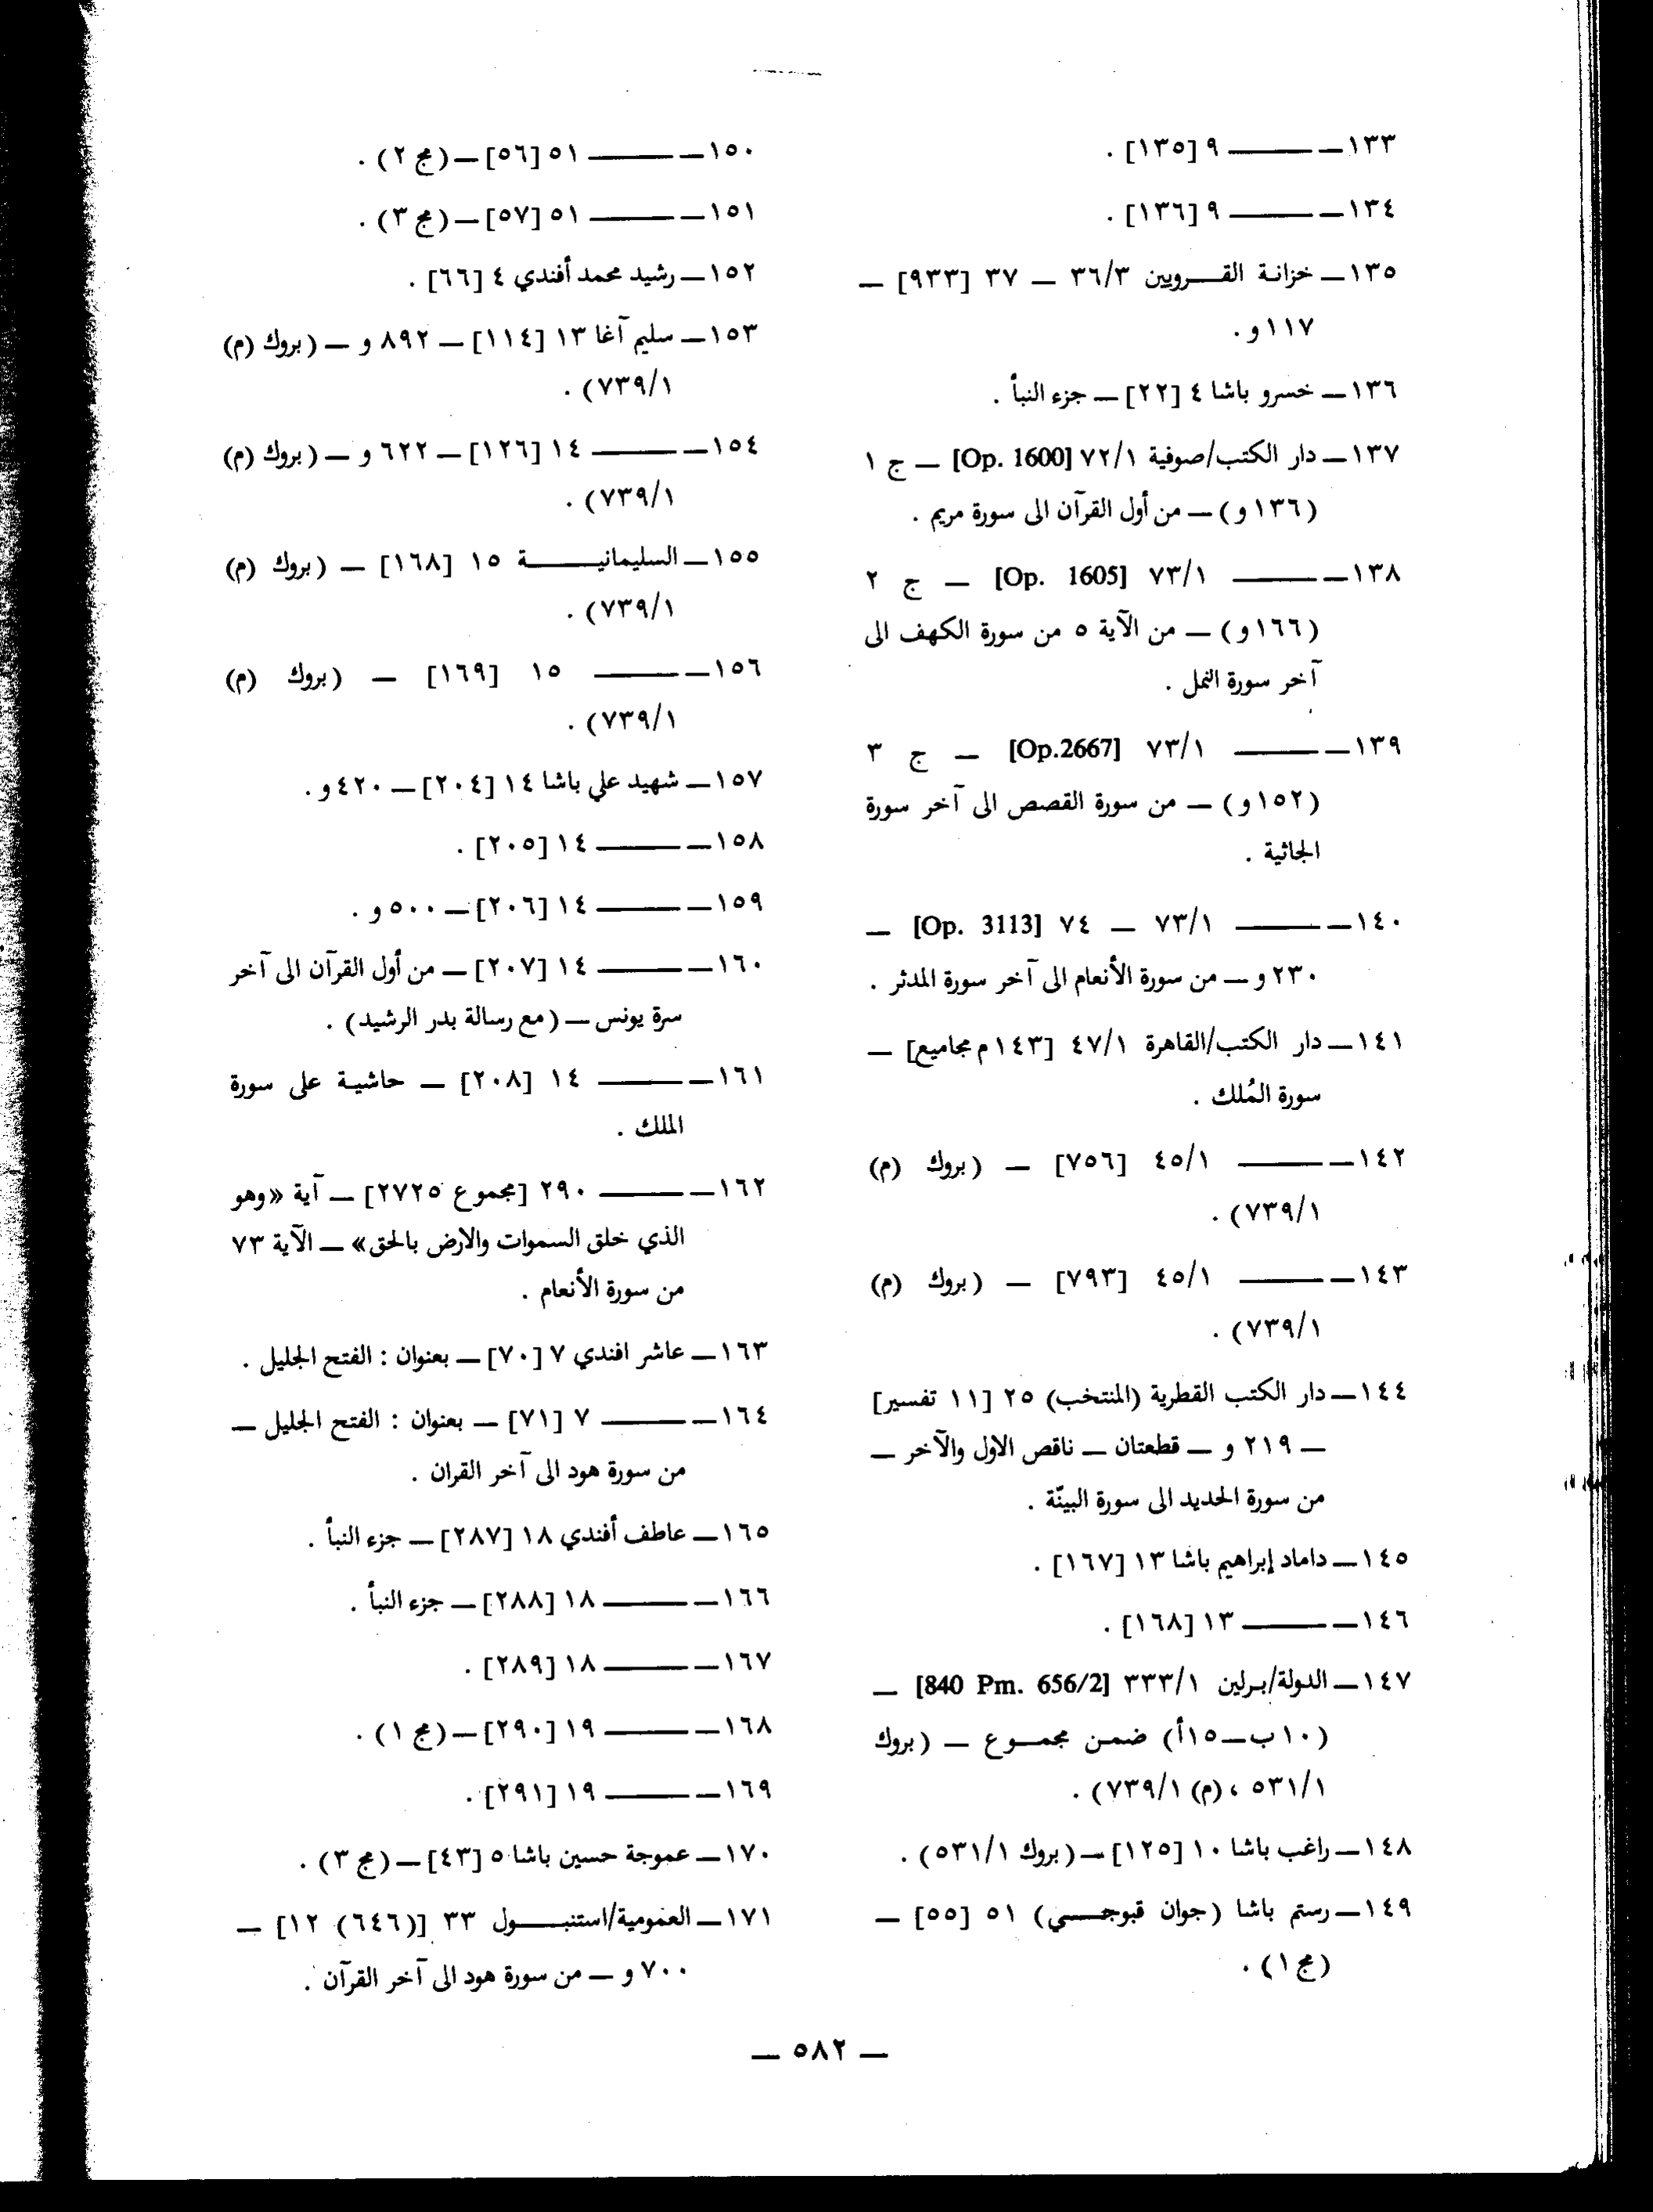 ١٣٣ــ ــــــــ ٩ [١٣٥] .
١٣٤ــ ــــــــ ٩ [١٣٦] .
١٣٥ــ خزانة القـــرويين ٣٦/٣ ــ ٣٧ [٩٣٣] ــ
١١٧ و .
١٣٦ــ خسرو باشا ٤ [٢٢] ــ جزء النبأ .
١٣٧ــ دار الكتب/صوفية ٧٢/١ [Op. 1600] ــ ج ١
(١٣٦ و) ــ من أول القرآن الى سورة مريم .
١٣٨ــ ــــــــ ٧٣/١ [Op. 1605] ــ ج ٢
(١٦٦ و) ــ من الآية ٥ من سورة الكهف الى
آخر سورة النمل .
١٣٩ــ ــــــــ ٧٣/١ [Op.2667] ــ ج ٣
(١٥٢ و) ــ من سورة القصص الى آخر سورة
الجاثية .
١٤٠ــ ــــــــ ٧٣/١ ــ ٧٤ [Op. 3113] ــ
٢٣٠ و ــ من سورة الأنعام الى آخر سورة المدثر .
١٤١ــ دار الكتب/القاهرة ٤٧/١ [١٤٣ م مجاميع] ــ
سورة المُلك .
١٤٢ــ ــــــــ ٤٥/١ [٧٥٦] ــ (بروك (م)
٧٣٩/١) .
١٤٣ــ ــــــــ ٤٥/١ [٧٩٣] ــ (بروك (م)
٧٣٩/١) .
١٤٤ــ دار الكتب القطرية (المنتخب) ٢٥ [١١ تفسير]
ــ ٢١٩ و ــ قطعتان ــ ناقص الاول والآخر ــ
من سورة الحديد الى سورة البينّة .
١٤٥ــ داماد إبراهيم باشا ١٣ [١٦٧] .
١٤٦ــ ــــــــ ١٣ [١٦٨] .
١٤٧ــ الدولة/برلين ٣٣٣/١ [840 Pm. 656/2] ــ
(١٠ب ــ ١٥أ) ضمن مجمـــوع ــ (بروك
٥٣١/١ ، (م) ٧٣٩/١) .
١٤٨ــ راغب باشا ١٠ [١٢٥] ــ (بروك ٥٣١/١) .
١٤٩ــ رستم باشا (جوان قبوجـــي) ٥١ [٥٥] ــ
(مج ١) .
١٥٠ــ ــــــــ ٥١ [٥٦] ــ (مج ٢) .
١٥١ــ ــــــــ ٥١ [٥٧] ــ (مج ٣) .
١٥٢ــ رشيد محمد أفندي ٤ [٦٦] .
١٥٣ــ سليم آغا ١٣ [١١٤] ــ ٨٩٢ و ــ (بروك (م)
٧٣٩/١) .
١٥٤ــ ــــــــ ١٤ [١٢٦] ــ ٦٢٢ و ــ (بروك (م)
٧٣٩/١) .
١٥٥ــ السليمانيـــــة ١٥ [١٦٨] ــ (بروك (م)
٧٣٩/١) .
١٥٦ــ ــــــــ ١٥ [١٦٩] ــ (بروك (م)
٧٣٩/١) .
١٥٧ــ شهيد علي باشا ١٤ [٢٠٤] ــ ٤٢٠ و .
١٥٨ــ ــــــــ ١٤ [٢٠٥] .
١٥٩ــ ــــــــ ١٤ [٢٠٦] ــ ٥٠٠ و .
١٦٠ــ ــــــــ ١٤ [٢٠٧] ــ من أول القرآن الى آخر
سرة يونس ــ (مع رسالة بدر الرشيد) .
١٦١ــ ــــــــ ١٤ [٢٠٨] ــ حاشية على سورة
الملك .
١٦٢ــ ــــــــ ٢٩٠ [مجموع ٢٧٢٥] ــ آية «وهو
الذي خلق السموات والارض بالحق» ــ الآية ٧٣
من سورة الأنعام .
١٦٣ــ عاشر افندي ٧ [٧٠] ــ بعنوان : الفتح الجليل .
١٦٤ــ ــــــــ ٧ [٧١] ــ بعنوان : الفتح الجليل ــ
من سورة هود الى آخر القران .
١٦٥ــ عاطف أفندي ١٨ [٢٨٧] ــ جزء النبأ .
١٦٦ــ ــــــــ ١٨ [٢٨٨] ــ جزء النبأ .
١٦٧ــ ــــــــ ١٨ [٢٨٩] .
١٦٨ــ ــــــــ ١٩ [٢٩٠] ــ (مج ١) .
١٦٩ــ ــــــــ ١٩ [٢٩١] .
١٧٠ــ عموجة حسين باشا ٥ [٤٣] ــ (مج ٣) .
١٧١ــ العمومية/استنبـــول ٣٣ [(٦٤٦) ١٢] ــ
٧٠٠ و ــ من سورة هود الى آخر القرآن .
ــ ٥٨٢ ــ